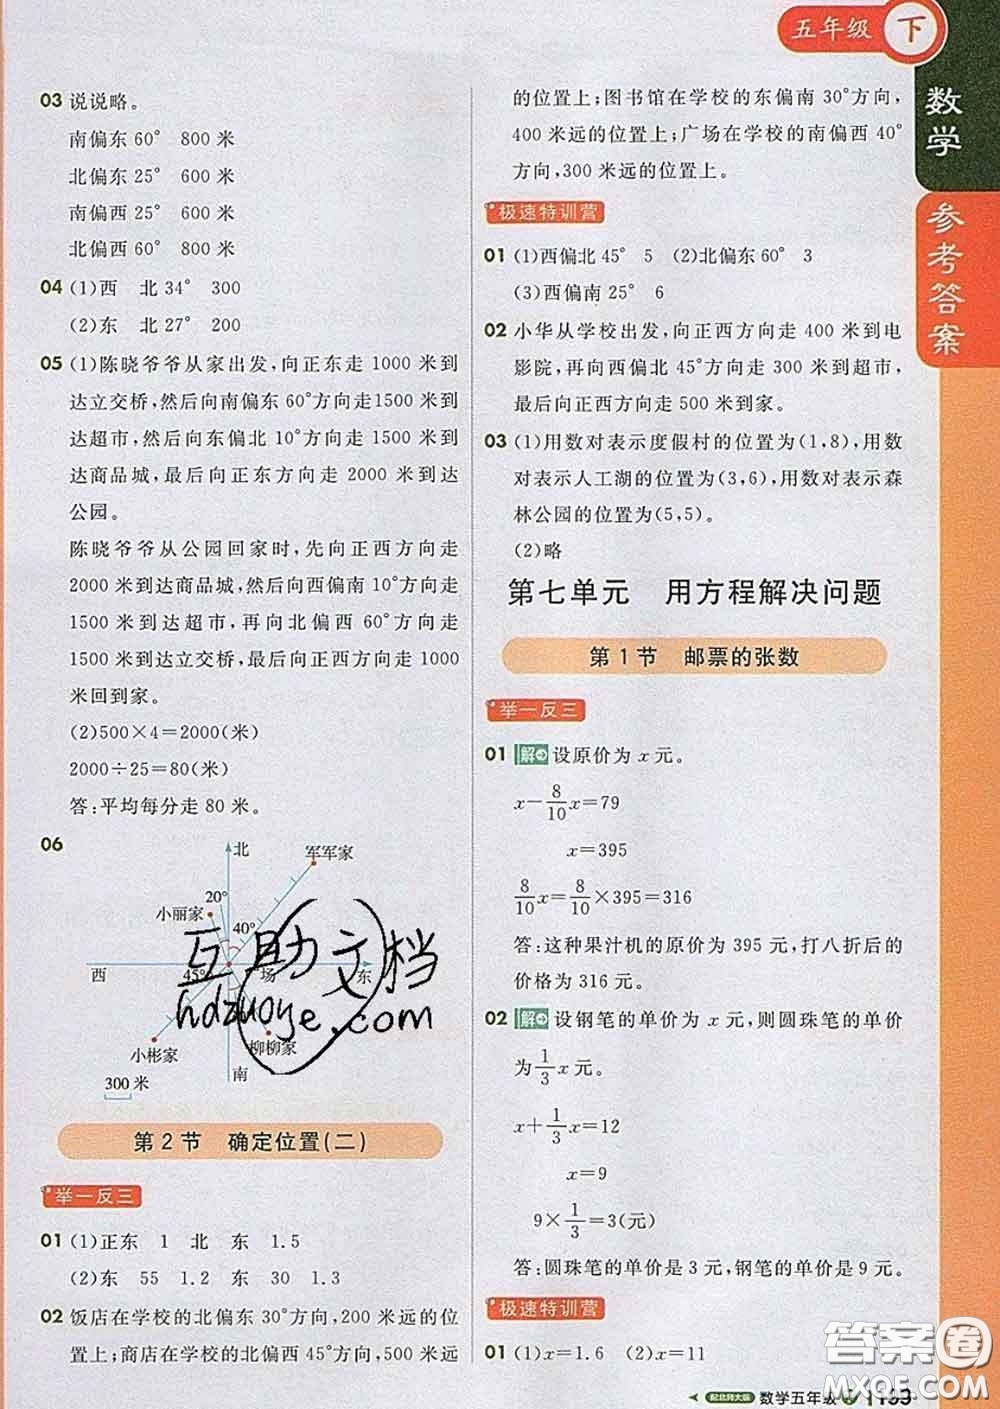 五年级 下
数学
参考答案
03 说说略。
南偏东60° 800米
北偏东25° 600米
南偏西25° 600米
北偏西60° 800米
04 (1)西 北34° 300
(2)东 北27° 200
05 (1)陈晓爷爷从家出发,向正东走1000米到
达立交桥,然后向南偏东60°方向走1500米到
达超市,然后向东偏北10°方向走1500米到
达商品城,最后向正东方向走2000米到达
公园。
陈晓爷爷从公园回家时,先向正西方向走
2000米到达商品城,然后向西偏南10°方向走
1500米到达超市,再向北偏西60°方向走
1500米到达立交桥,最后向正西方向走1000
米回到家。
(2)500×4=2000(米)
2000÷25=80(米)
答:平均每分走80米。
06
北
军军家
20°
小丽家
40°
西
45°
广场
东
小彬家
柳柳家
南
300米
互助文档
hdzuoye.com
第2节 确定位置(二)
举一反三
01 (1)正东 1 北 东 1.5
(2)东 55 1.2 东 30 1.3
02 饭店在学校的北偏东30°方向,200米远的位
置上;商店在学校的北偏西45°方向,400米远
的位置上;图书馆在学校的东偏南30°方向,
400米远的位置上;广场在学校的南偏西40°
方向,300米远的位置上。
极速特训营
01 (1)西偏北45° 5 (2)北偏东60° 3
(3)西偏南25° 6
02 小华从学校出发,向正西方向走400米到电
影院,再向西偏北45°方向走300米到邮局,
最后向正西方向走500米到家。
03 (1)用数对表示度假村的位置为(1,8),用数
对表示人工湖的位置为(3,6),用数对表示森
林公园的位置为(5,5)。
(2)略
第七单元 用方程解决问题
第1节 邮票的张数
举一反三
01 解 设原价为x元。
x-8/10x=79
x=395
8/10x=8/10×395=316
答:这种果汁机的原价为395元,打八折后的
价格为316元。
02 解 设钢笔的单价为x元,则圆珠笔的单价
为1/3x元。
x+1/3x=12
x=9
9×1/3=3(元)
答:圆珠笔的单价是3元,钢笔的单价是9元。
极速特训营
01 (1)x=1.6 (2)x=11
配北师大版 数学五年级 下
答案圈
MXQE.COM